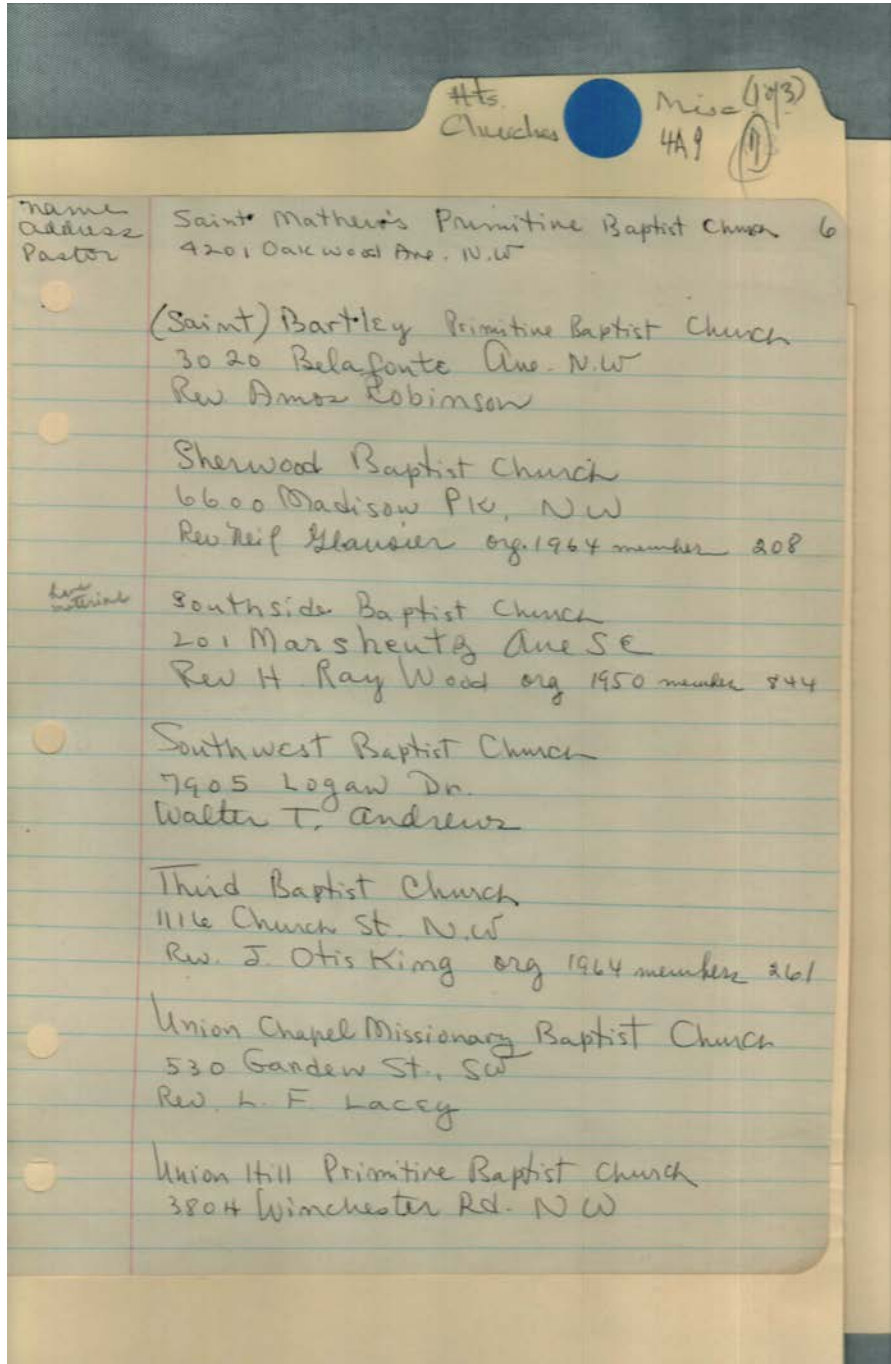 Hts. Misc (1 of 3)
Churches 4A9
name
address
Pastor
Saint Mathew's Primitive Baptist Church 6
4201 Oakwood Ave. N.W
(Saint) Bartley Primitive Baptist Church
3020 Belafonte Ave. N.W
Rev Amos Robinson
Sherwood Baptist Church
6600 Madison PK, NW
Rev Neil Glausier org. 1964 member 208
have
material
Southside Baptist Church
201 Marsheutz Ave SE
Rev H. Ray Wood org 1950 member 844
Southwest Baptist Church
7905 Logan Dr.
Walter T. Andrews
Third Baptist Church
1116 Church St. N.W
Rev. J. Otis King org 1964 members 261
Union Chapel Missionary Baptist Church
530 Ganden St., SW
Rev. L. F. Lacey
Union Hill Primitive Baptist Church
3804 Winchester Rd. NW